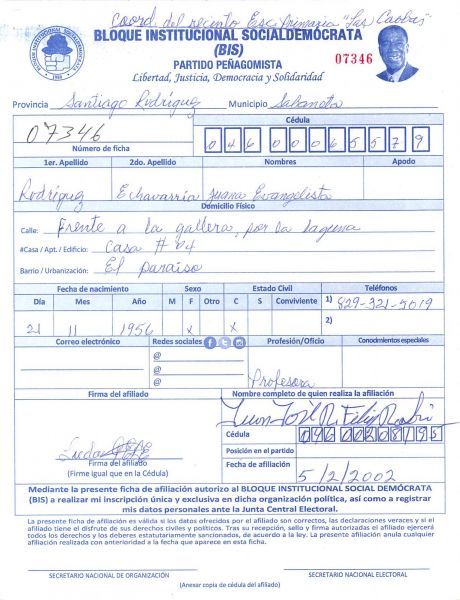 Coord. del recinto Esc. primaria "Las Caobas"
BLOQUE INSTITUCIONAL SOCIALDEMÓCRATA
(BIS)
PARTIDO PEÑAGOMISTA
Libertad, Justicia, Democracia y Solidaridad
BLOQUE INSTITUCIONAL SOCIALDEMOCRATA
07346
Provincia Santiago Rodríguez Municipio Sabaneta
07346
Número de ficha
Cédula
046 0006557 9
1er. Apellido 2do. Apellido Nombres Apodo
Rodríguez Echavarría Juana Evangelista
Domicilio Físico
Calle: Frente a la gallera, por la laguna
#Casa / Apt. / Edificio: Casa # 04
Barrio / Urbanización: El paraíso
Fecha de nacimiento Sexo Estado Civil Teléfonos
Día Mes Año M F Otro C S Conviviente 1) 829-321-5019
21 11 1956 X X 2)
Correo electrónico Redes sociales Profesión/Oficio Conocimientos especiales
@
@
@ Profesora
Firma del afiliado Nombre completo de quien realiza la afiliación
Juan José R.
Cédula 046 0028719 5
Posición en el partido
Firma del afiliado
(Firme igual que en la Cédula)
Fecha de afiliación 5/2/2002
Mediante la presente ficha de afiliación autorizo al BLOQUE INSTITUCIONAL SOCIAL DEMÓCRATA
(BIS) a realizar mi inscripción única y exclusiva en dicha organización política, así como a registrar
mis datos personales ante la Junta Central Electoral.
La presente ficha de afiliación es válida si los datos ofrecidos por el afiliado son correctos, las declaraciones veraces y si el afiliado
tiene el disfrute de sus derechos civiles y políticos. Tras su recepción, sello y firma autorizados el afiliado ejercerá
todos los derechos y los deberes estatutariamente sancionados, de acuerdo a la ley. La presente afiliación anula cualquier
afiliación realizada con anterioridad a la fecha que aparece en esta ficha.
SECRETARIO NACIONAL DE ORGANIZACIÓN SECRETARIO NACIONAL ELECTORAL
(Anexar copia de cédula del afiliado)